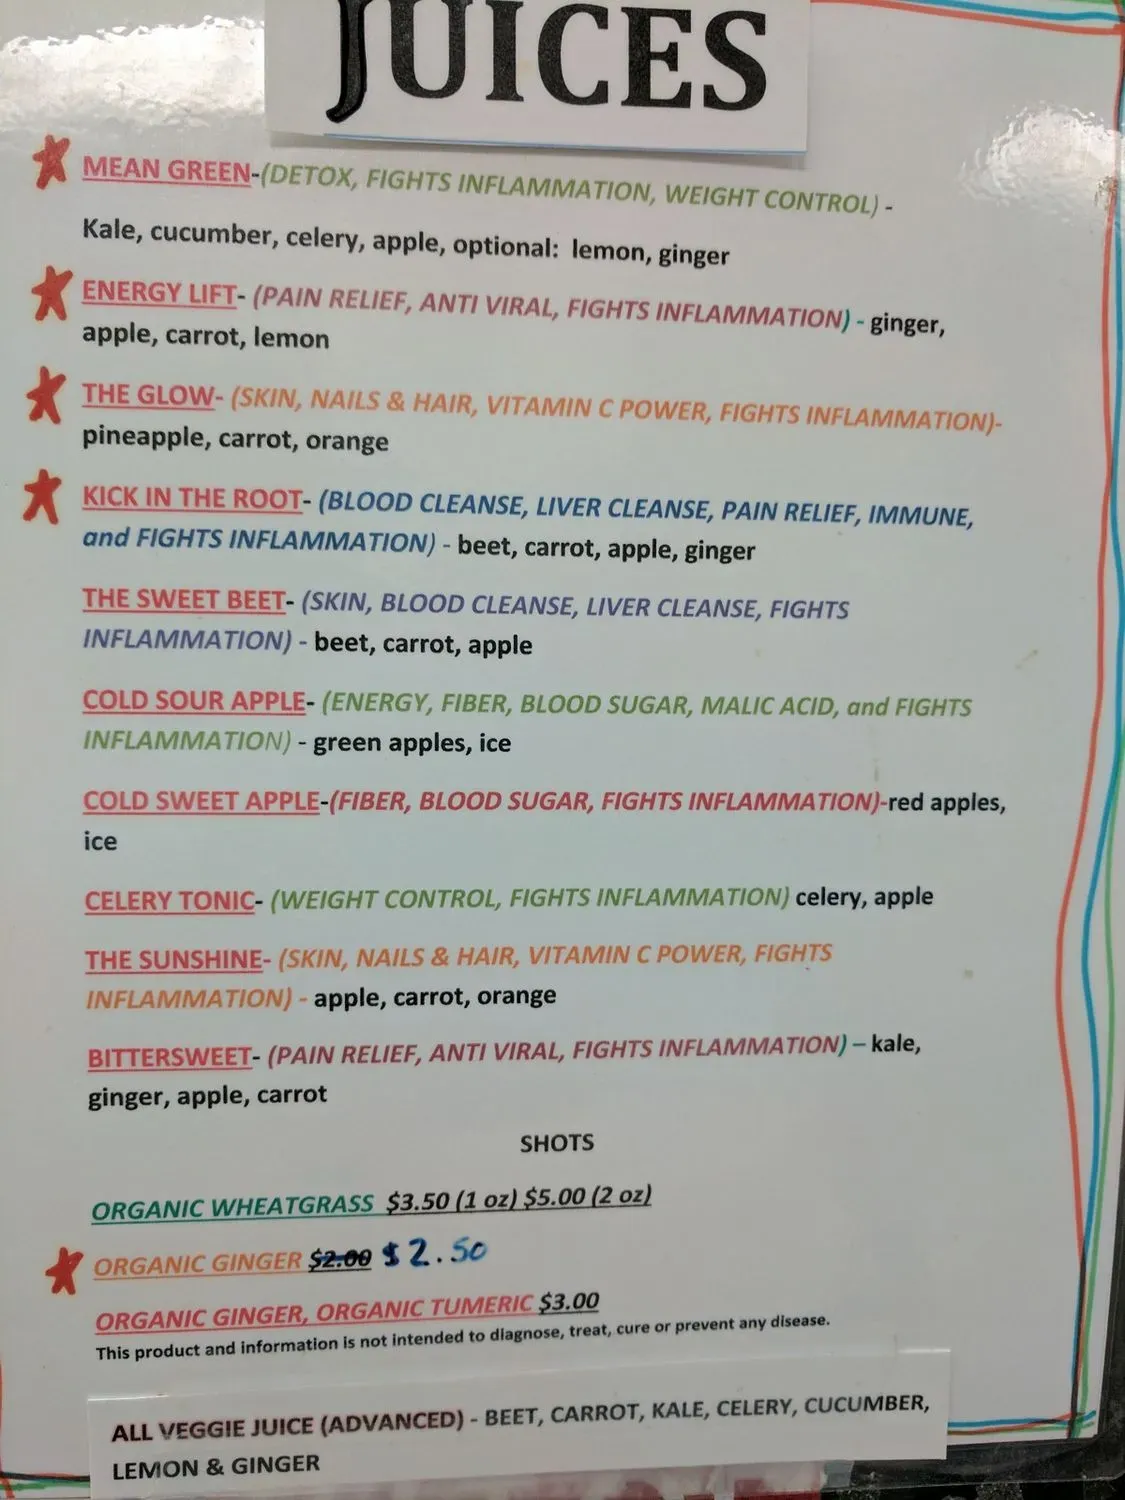 JUICES
MEAN GREEN-(DETOX, FIGHTS INFLAMMATION, WEIGHT CONTROL) -
Kale, cucumber, celery, apple, optional: lemon, ginger
ENERGY LIFT- (PAIN RELIEF, ANTI VIRAL, FIGHTS INFLAMMATION) - ginger,
apple, carrot, lemon
THE GLOW- (SKIN, NAILS & HAIR, VITAMIN C POWER, FIGHTS INFLAMMATION)-
pineapple, carrot, orange
KICK IN THE ROOT- (BLOOD CLEANSE, LIVER CLEANSE, PAIN RELIEF, IMMUNE,
and FIGHTS INFLAMMATION) - beet, carrot, apple, ginger
THE SWEET BEET- (SKIN, BLOOD CLEANSE, LIVER CLEANSE, FIGHTS
INFLAMMATION) - beet, carrot, apple
COLD SOUR APPLE- (ENERGY, FIBER, BLOOD SUGAR, MALIC ACID, and FIGHTS
INFLAMMATION) - green apples, ice
COLD SWEET APPLE-(FIBER, BLOOD SUGAR, FIGHTS INFLAMMATION)-red apples,
ice
CELERY TONIC- (WEIGHT CONTROL, FIGHTS INFLAMMATION) celery, apple
THE SUNSHINE- (SKIN, NAILS & HAIR, VITAMIN C POWER, FIGHTS
INFLAMMATION) - apple, carrot, orange
BITTERSWEET- (PAIN RELIEF, ANTI VIRAL, FIGHTS INFLAMMATION) – kale,
ginger, apple, carrot
SHOTS
ORGANIC WHEATGRASS $3.50 (1 oz) $5.00 (2 oz)
ORGANIC GINGER $2.00 $2.50
ORGANIC GINGER, ORGANIC TUMERIC $3.00
This product and information is not intended to diagnose, treat, cure or prevent any disease.
ALL VEGGIE JUICE (ADVANCED) - BEET, CARROT, KALE, CELERY, CUCUMBER,
LEMON & GINGER